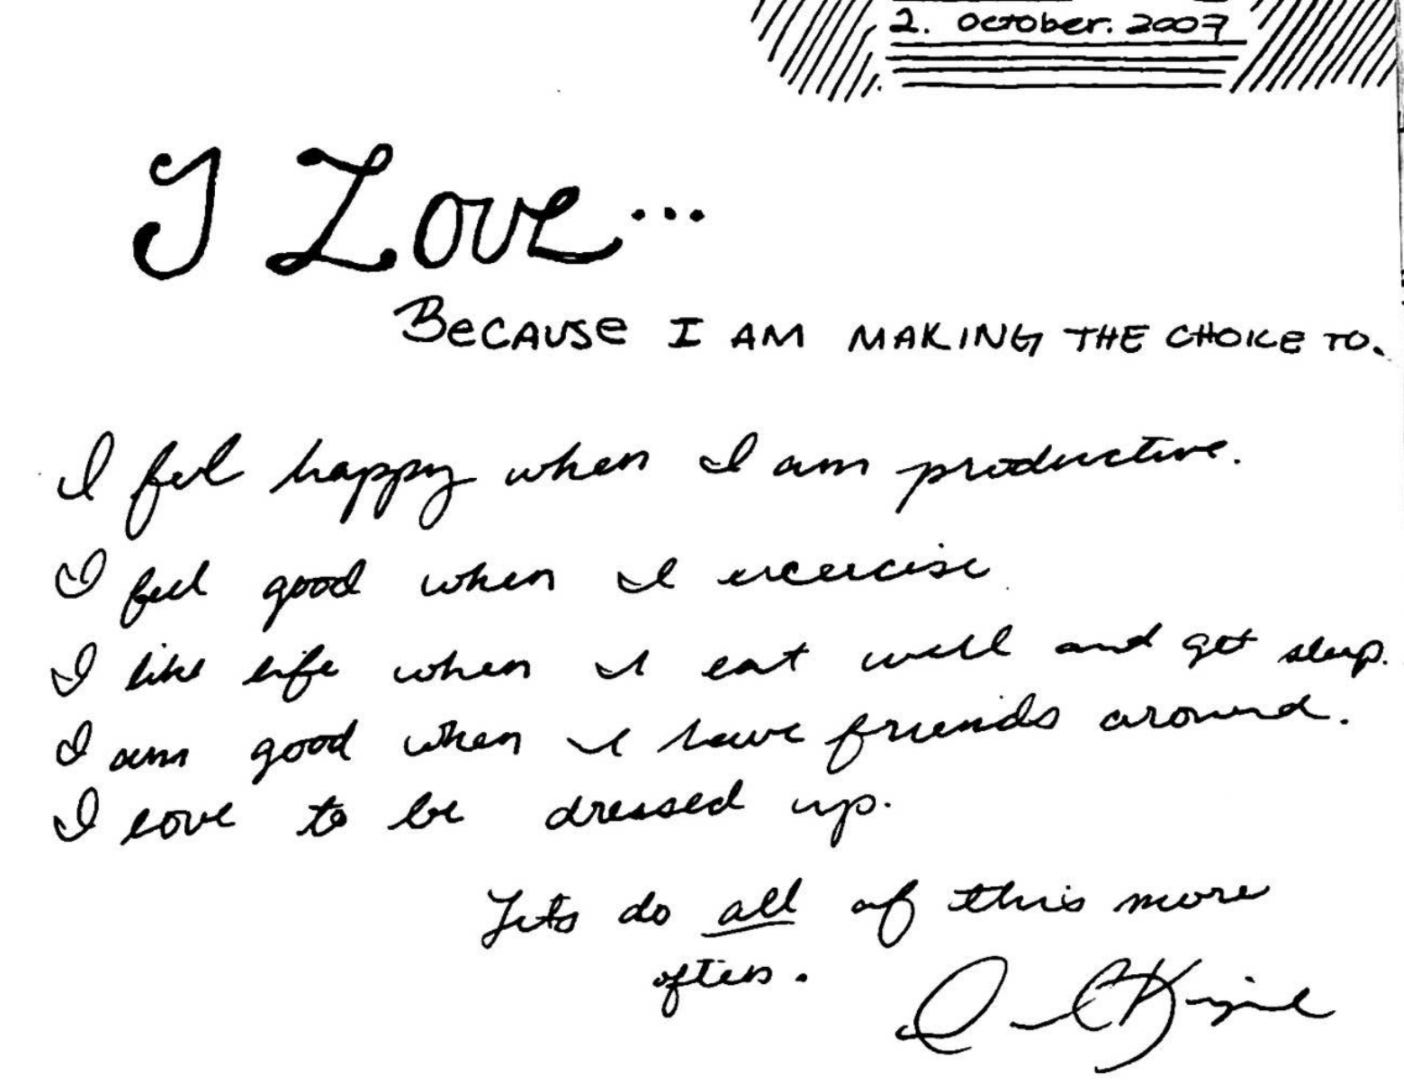 2. October. 2007
I Love...
Because I AM MAKING THE CHOICE TO.
I feel happy when I am productive.
I feel good when I excercise
I like life when I eat well and get sleep.
I am good when I have friends around.
I love to be dressed up.
Lets do all of this more
often.